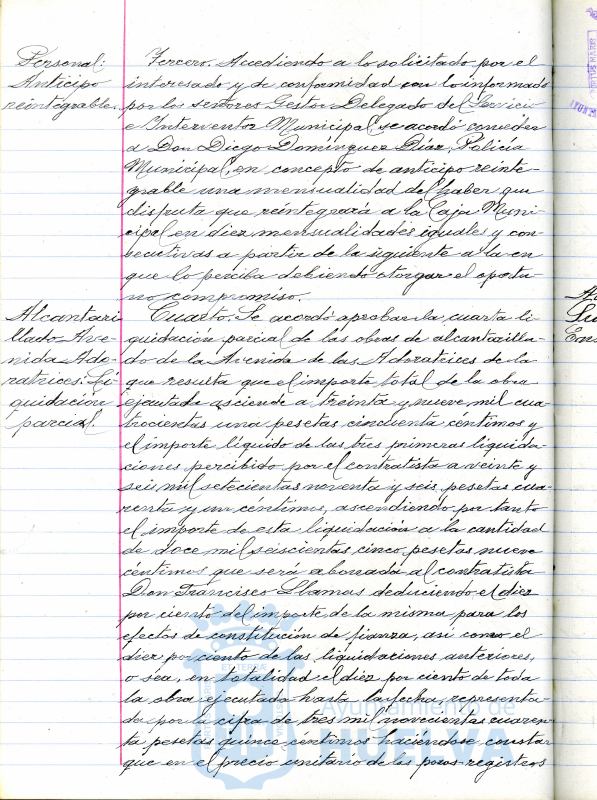 Personal:
Anticipo
reintegrable.
Tercero. Accediendo a lo solicitado por el
interesado y de conformidad con lo informado
por los señores Gestor Delegado del Servicio
e Interventor Municipal, se acordó conceder
a Don Diego Domínguez Díaz, Policía
Municipal, en concepto de anticipo reinte-
grable una mensualidad del haber que
disfruta que reintegrará a la Caja Muni-
cipal en diez mensualidades iguales y con-
secutivas a partir de la siguiente a la en
que lo perciba debiendo otorgar el oportu-
no compromiso.
Alcantari
llado Ave-
nida Ado-
ratrices. Li-
quidación
parcial.
Cuarto. Se acordó aprobar la cuarta li-
quidación parcial de las obras de alcantarilla-
do de la Avenida de las Adoratrices de la
que resulta que el importe total de la obra
ejecutada asciende a treinta y nueve mil cua-
trocientas una pesetas cincuenta céntimos y
el importe líquido de las tres primeras liquida-
ciones percibido por el contratista a veinte y
seis mil setecientas noventa y seis pesetas cua-
renta y un céntimos, ascendiendo por tanto
el importe de esta liquidación a la cantidad
de doce mil seiscientas cinco pesetas nueve
céntimos que será abonada al contratista
Don Francisco Llamas deduciendo el diez
por ciento del importe de la misma para los
efectos de constitución de fianza, así como el
diez por ciento de las liquidaciones anteriores,
o sea, en totalidad el diez por ciento de toda
la obra ejecutada hasta la fecha, representa-
da por la cifra de tres mil novecientas cuaren-
ta pesetas quince céntimos haciéndose constar
que en el precio unitario de los pozos-registros
Ayuntamiento de
HUELVA